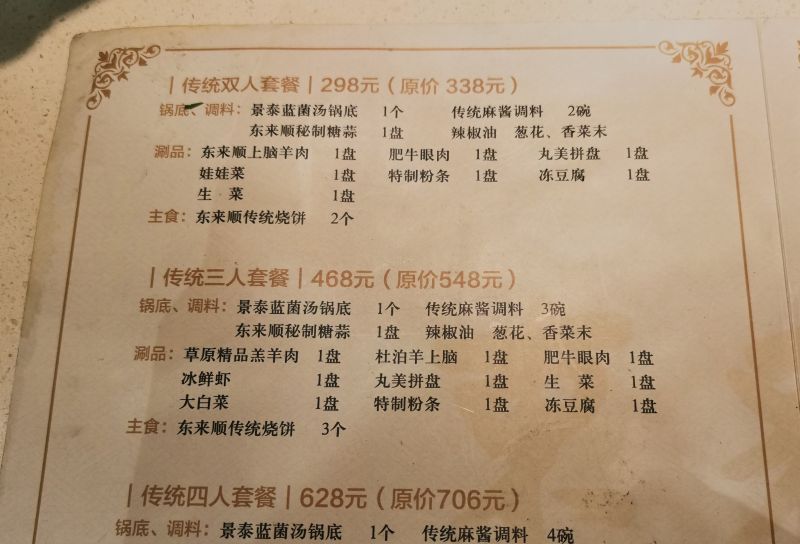 | 传统双人套餐 | 298元（原价 338元）
锅底、调料: 景泰蓝菌汤锅底 1个 传统麻酱调料 2碗
东来顺秘制糖蒜 1盘 辣椒油 葱花、香菜末
涮品: 东来顺上脑羊肉 1盘 肥牛眼肉 1盘 丸美拼盘 1盘
娃娃菜 1盘 特制粉条 1盘 冻豆腐 1盘
生 菜 1盘
主食: 东来顺传统烧饼 2个
| 传统三人套餐 | 468元（原价548元）
锅底、调料: 景泰蓝菌汤锅底 1个 传统麻酱调料 3碗
东来顺秘制糖蒜 1盘 辣椒油 葱花、香菜末
涮品: 草原精品羔羊肉 1盘 杜泊羊上脑 1盘 肥牛眼肉 1盘
冰鲜虾 1盘 丸美拼盘 1盘 生 菜 1盘
大白菜 1盘 特制粉条 1盘 冻豆腐 1盘
主食: 东来顺传统烧饼 3个
| 传统四人套餐 | 628元（原价706元）
锅底、调料: 景泰蓝菌汤锅底 1个 传统麻酱调料 4碗